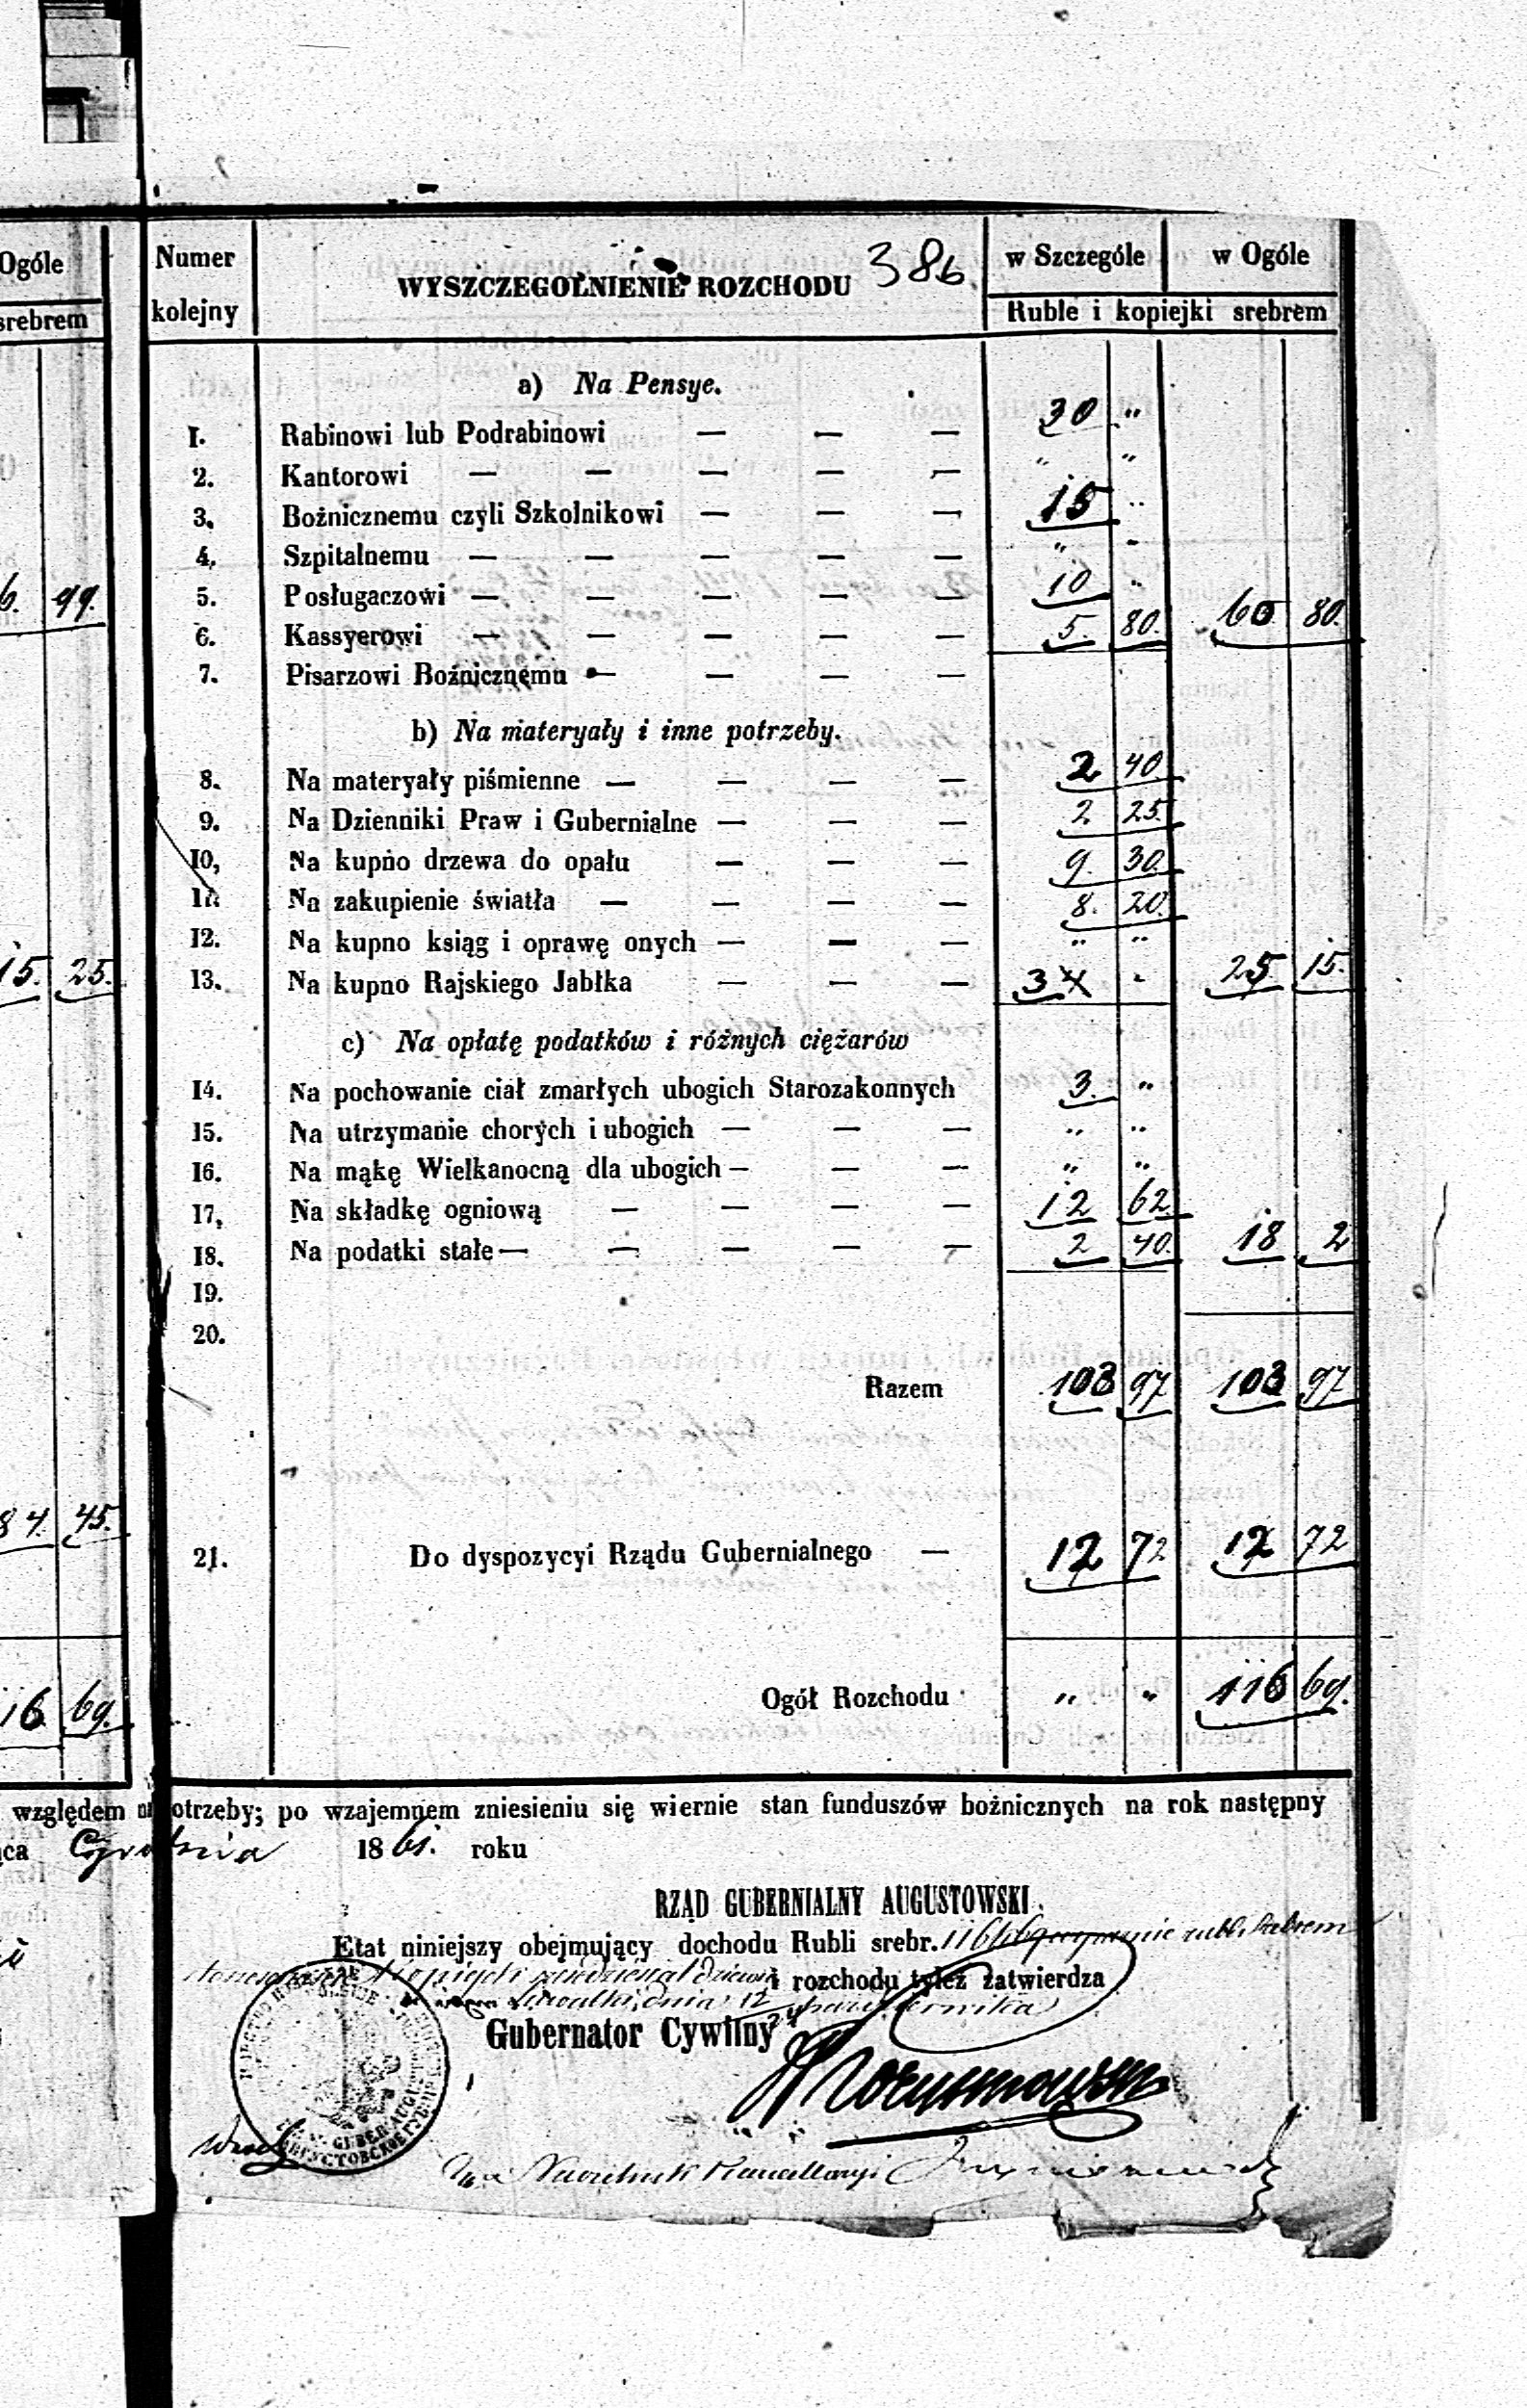 Ogóle
srebrem
6. 99.
15. 25.
84. 45.
116. 69.
Numer kolejny WYSZCZEGÓLNIENIE ROZCHODU 386 w Szczególe w Ogóle
Ruble i kopiejki srebrem
a) Na Pensye.
1. Rabinowi lub Podrabinowi — — — 30 „
2. Kantorowi — — — — — „ „
3. Bożnicznemu czyli Szkolnikowi — — — 15 „
4. Szpitalnemu — — — — — „ „
5. Posługaczowi — — — — — 10 „
6. Kassyerowi — — — — — 5. 80. 60 80.
7. Pisarzowi Bożnicznemu — — — —
b) Na materyały i inne potrzeby.
8. Na materyały piśmienne — — — — 2 40
9. Na Dzienniki Praw i Gubernialne — — — 2. 25.
10. Na kupno drzewa do opału — — — 9. 30.
11. Na zakupienie światła — — — — 8. 20.
12. Na kupno ksiąg i oprawę onych — — — „ „
13. Na kupno Rajskiego Jabłka — — — 3 „ 25 15.
c) Na opłatę podatków i różnych ciężarów
14. Na pochowanie ciał zmarłych ubogich Starozakonnych 3. „
15. Na utrzymanie chorych i ubogich — — — „ „
16. Na mąkę Wielkanocną dla ubogich — — — „ „
17. Na składkę ogniową — — — — 12 62
18. Na podatki stałe — — — — — 2 40. 18 2
19.
20.
Razem 103 97 103 97
21. Do dyspozycyi Rządu Gubernialnego — 12 72 12 72
Ogół Rozchodu „ „ 116 69.
względem otrzeby; po wzajemnem zniesieniu się wiernie stan funduszów bożnicznych na rok następny
ąca 1861. roku
RZĄD GUBERNIALNY AUGUSTOWSKI.
Etat niniejszy obejmujący dochodu Rubli srebr. 116
i rozchodu tyleż zatwierdza
Suwałki, dnia 12 października
Gubernator Cywilny
Naczelnik Kancellaryi